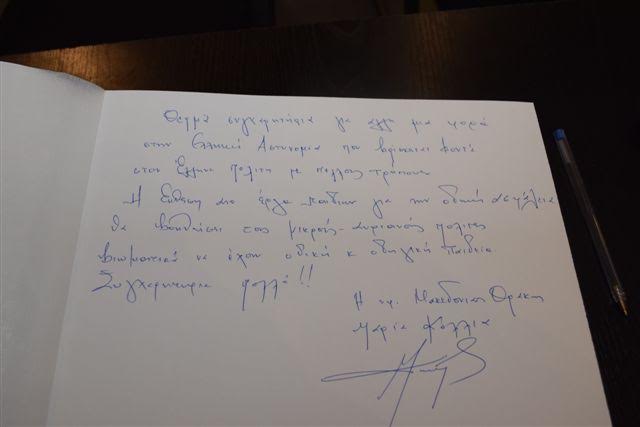 Θερμά συγχαρητήρια για άλλη μια φορά
στην Ελληνική Αστυνομία που βρίσκεται κοντά
στον Έλληνα πολίτη με πολλούς τρόπους.
Η Έκθεση με έργα παιδιών για την οδική ασφάλεια
θα βοηθήσει τους μικρούς-αυριανούς πολίτες
βιωματικά να έχουν οδική κ οδηγική παιδεία.
Συγχαρητήρια πολλά!!
Η υφ. Μακεδονίας Θράκης
Μαρία Κόλλια